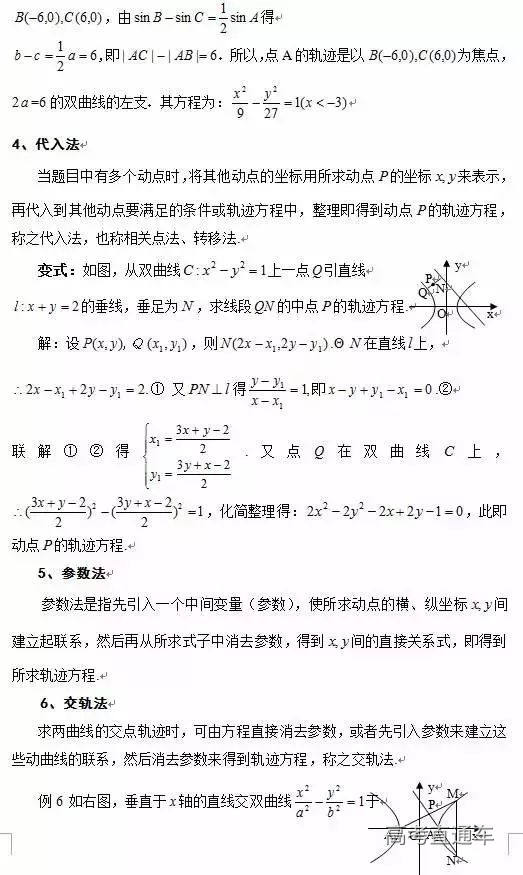 B(−6,0),C(6,0)，由 sin B − sin C = 1/2 sin A 得
b − c = 1/2 a = 6,即 | AC | − | AB |= 6．所以,点 A 的轨迹是以 B(−6,0),C(6,0)为焦点，
2a=6 的双曲线的左支．其方程为：x²/9 − y²/27 = 1(x < −3)
4、代入法
当题目中有多个动点时,将其他动点的坐标用所求动点 P 的坐标 x, y 来表示，
再代入到其他动点要满足的条件或轨迹方程中，整理即得到动点 P 的轨迹方程，
称之代入法，也称相关点法、转移法.
变式：如图，从双曲线 C : x² − y² = 1上一点 Q 引直线
l : x + y = 2的垂线，垂足为 N，求线段 QN 的中点 P 的轨迹方程.
P y
Q N
O x
解：设 P(x, y)，Q (x₁, y₁)，则 N(2x − x₁,2y − y₁) .Θ N 在直线 l 上，
∴2x − x₁ + 2y − y₁ = 2.① 又 PN ⊥ l 得 (y − y₁)/(x − x₁) = 1,即 x − y + y₁ − x₁ = 0 .②
联解①②得 { x₁ = (3x + y − 2)/2 y₁ = (3y + x − 2)/2 . 又点 Q 在双曲线 C 上，
∴((3x + y − 2)/2)² − ((3y + x − 2)/2)² = 1，化简整理得：2x² − 2y² − 2x + 2y − 1 = 0，此即
动点 P 的轨迹方程.
5、参数法
参数法是指先引入一个中间变量（参数），使所求动点的横、纵坐标 x, y 间
建立起联系，然后再从所求式子中消去参数，得到 x, y 间的直接关系式，即得到
所求轨迹方程.
6、交轨法
求两曲线的交点轨迹时，可由方程直接消去参数，或者先引入参数来建立这
些动曲线的联系，然后消去参数来得到轨迹方程，称之交轨法.
例 6 如右图，垂直于 x 轴的直线交双曲线 x²/a² − y²/b² = 1于
y M
P
A x
N
高考直通车